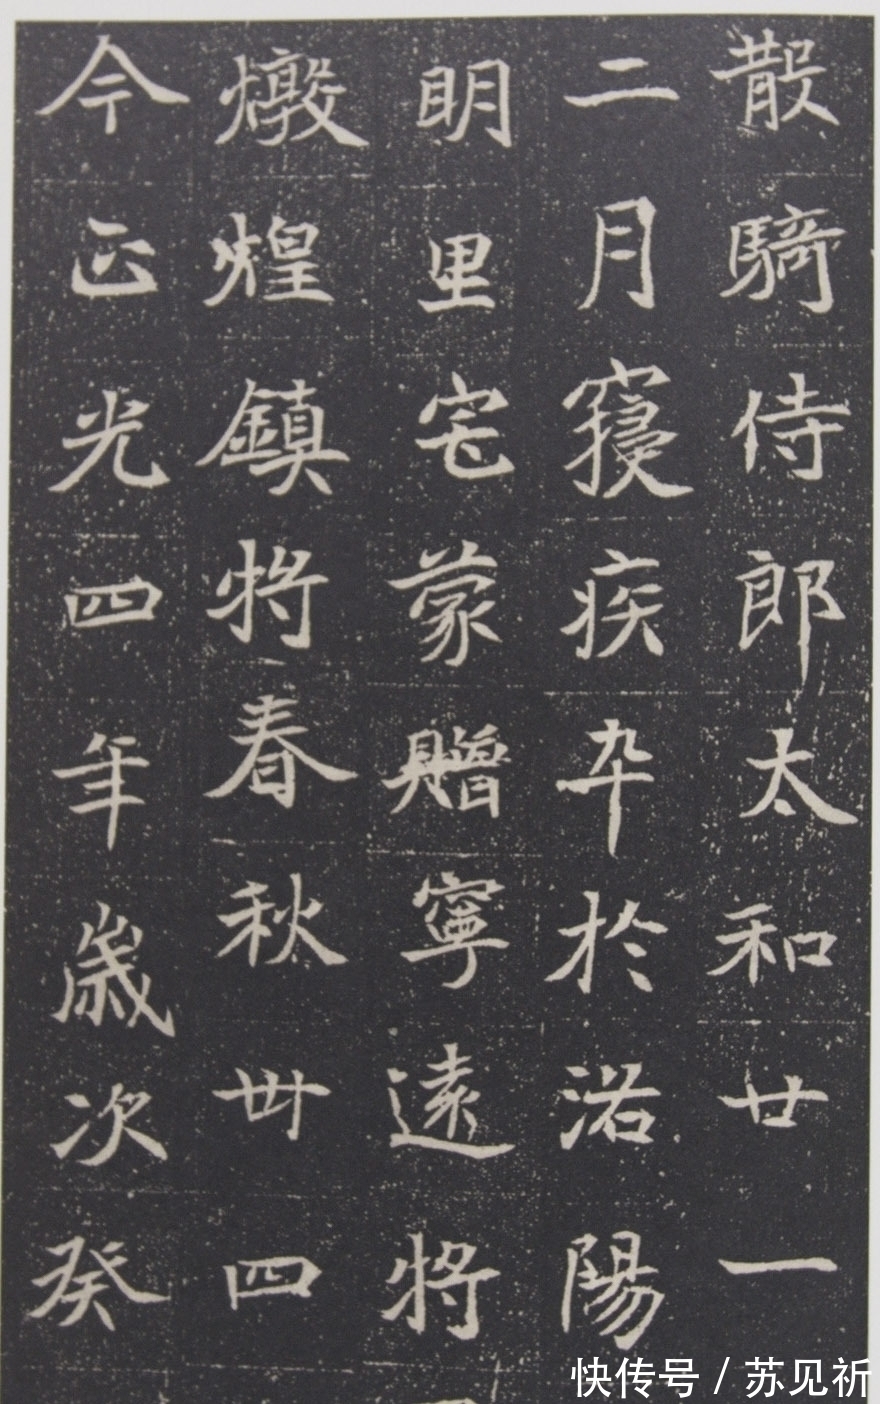 散騎侍郎太和廿一
二月寝疾卒於洛陽
明里宅蒙贈寧遠將
燉煌鎮將春秋卌四
今正光四年歲次癸
快传号 / 苏见祈